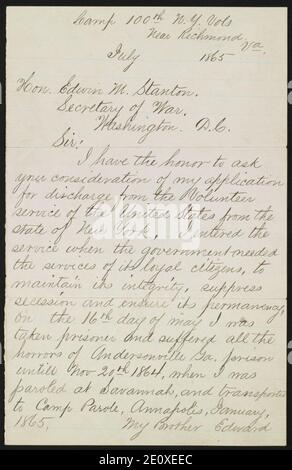 Camp 100th N.Y. Vols
Near Richmond,
Va
July 1865
Hon. Edwin M. Stanton.
Secretary of War.
Washington D.C.
Sir:
I have the honor to ask
your consideration of my application
for discharge from the Volunteer
service of the United States from the
state of New York. I entered the
service when the government needed
the services of its loyal citizens, to
maintain its integrity, suppress
secession and ensure its permanency,
on the 16th day of may I was
taken prisoner and suffered all the
horrors of Andersonville Ga. prison
untill Nov 20th 1864, when I was
paroled at Savannah, and transported
to Camp Parole, Annapolis, January,
1865. My Brother Edward
alamy
Image ID: 2E0XEEC
www.alamy.com